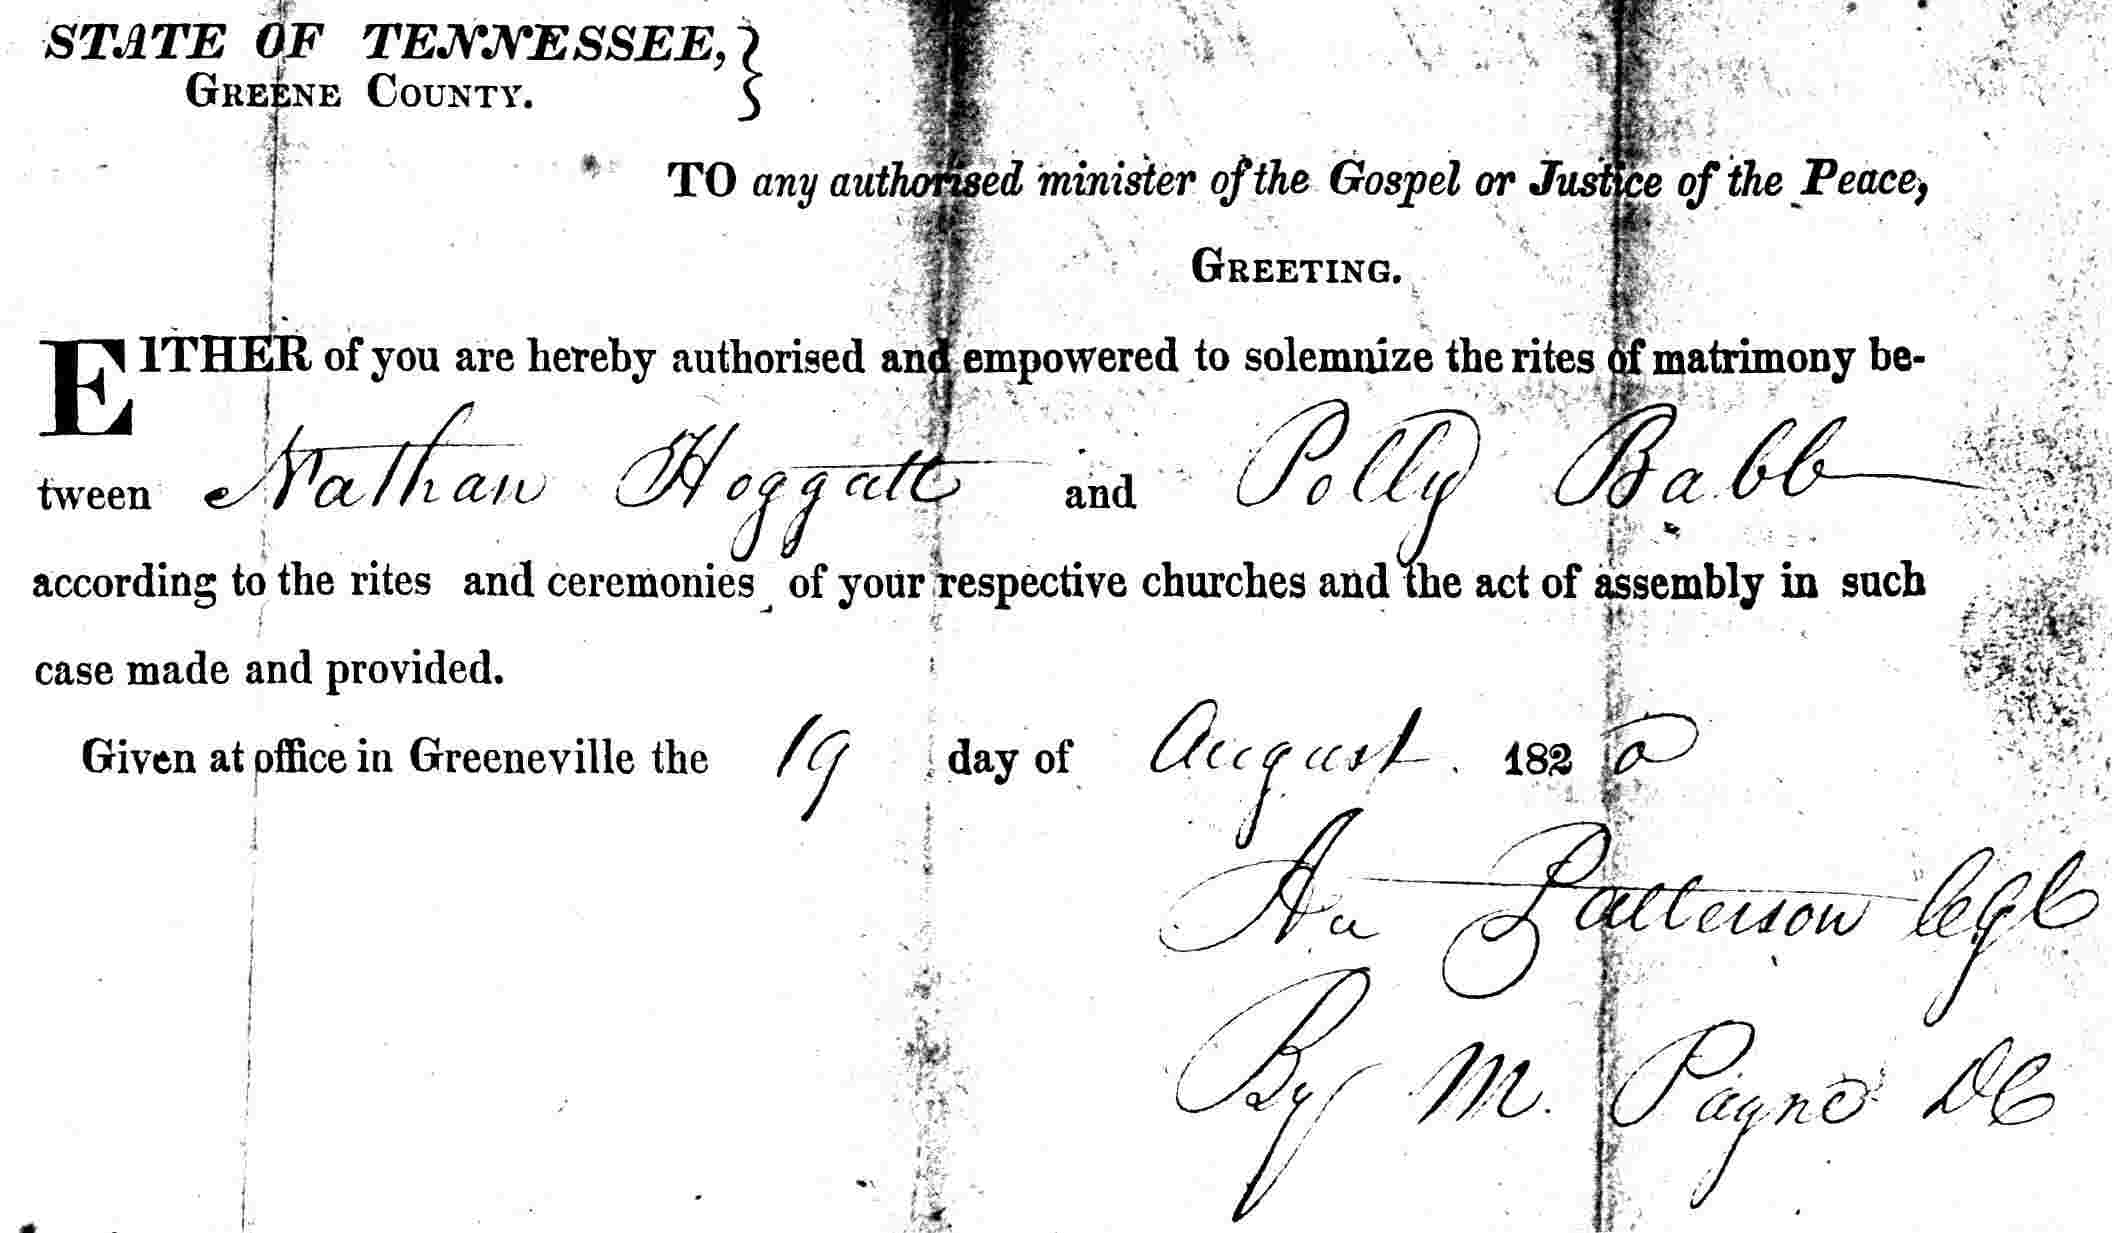 STATE OF TENNESSEE,
GREENE COUNTY.
TO any authorised minister of the Gospel or Justice of the Peace,
GREETING.
EITHER of you are hereby authorised and empowered to solemnize the rites of matrimony be-
tween Nathan Hoggatt and Polly Babb
according to the rites and ceremonies of your respective churches and the act of assembly in such
case made and provided.
Given at office in Greeneville the 19 day of August 1820
Patterson
By M. Payne DC